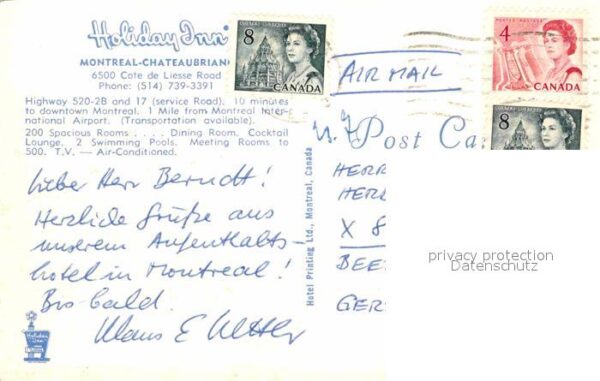 Holiday Inn
MONTREAL-CHATEAUBRIAN
6500 Cote de Liesse Road
Phone: (514) 739-3391
Highway 520-2B and 17 (service Road). 10 minutes
to downtown Montreal. 1 Mile from Montreal Inter-
national Airport. (Transportation available).
200 Spacious Rooms . . . . Dining Room. Cocktail
Lounge. 2 Swimming Pools. Meeting Rooms to
500. T.V. — Air-Conditioned.
Lieber Herr Berndt!
Herzliche Grüße aus
unserem Aufenthalts-
hotel in Montreal!
Bis bald.
Klaus E
Holiday Inn
Hotel Printing Ltd., Montreal, Canada
8
CANADA
4
POSTES POSTAGE
CANADA
8
AIR MAIL
Post Ca
HERR
HER
X 8
BEE
GER
privacy protection
Datenschutz